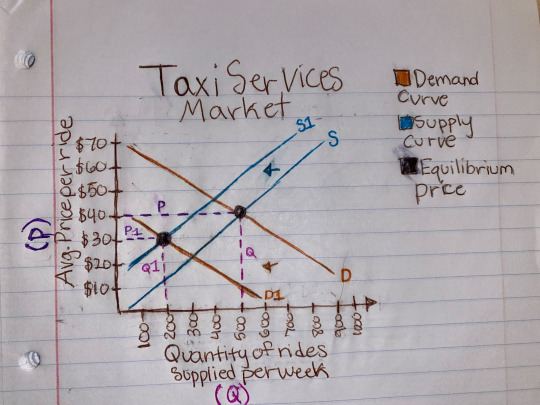 Taxi Services
Market
Demand
curve
Supply
curve
Equilibrium
price
Avg. Price per ride
(P)
$70
$60
$50
$40
$30
$20
$10
S1
S
P
P1
Q1
Q
D
D1
100
200
300
400
500
600
700
800
900
1000
Quantity of rides
Supplied per week
(Q)